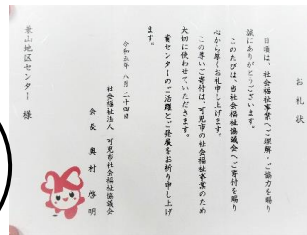 お礼状
日頃は、社会福祉事業へご理解・ご協力を賜り
誠にありがとうございます。
このたびは、当社会福祉協議会へご寄付を賜り
心から厚くお礼申し上げます。
この尊いご寄付は、可児市の社会福祉事業のため
大切に使わせていただきます。
貴センターのご活躍とご発展をお祈り申し上げ
ます。
令和五年 八月二十四日
社会福祉法人 可児市社会福祉協議会
会長 奥村 啓明
兼山地区センター 様